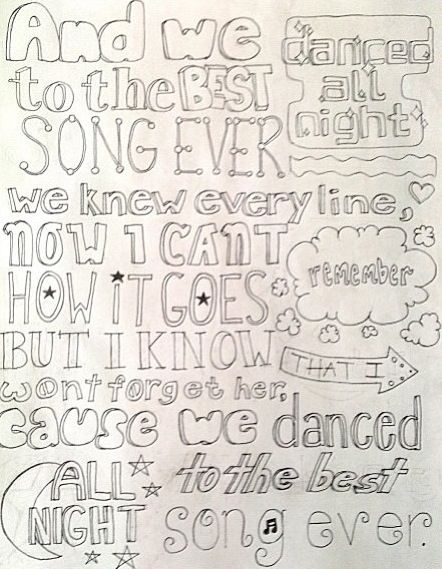 And we
danced
all
night
to the BEST
SONG EVER
we knew every line,
NOW I CANT
remember
HOW iT GOES
BUT I KNOW
THAT I
wont forget her.
cause we danced
ALL
NIGHT
to the best
song ever.